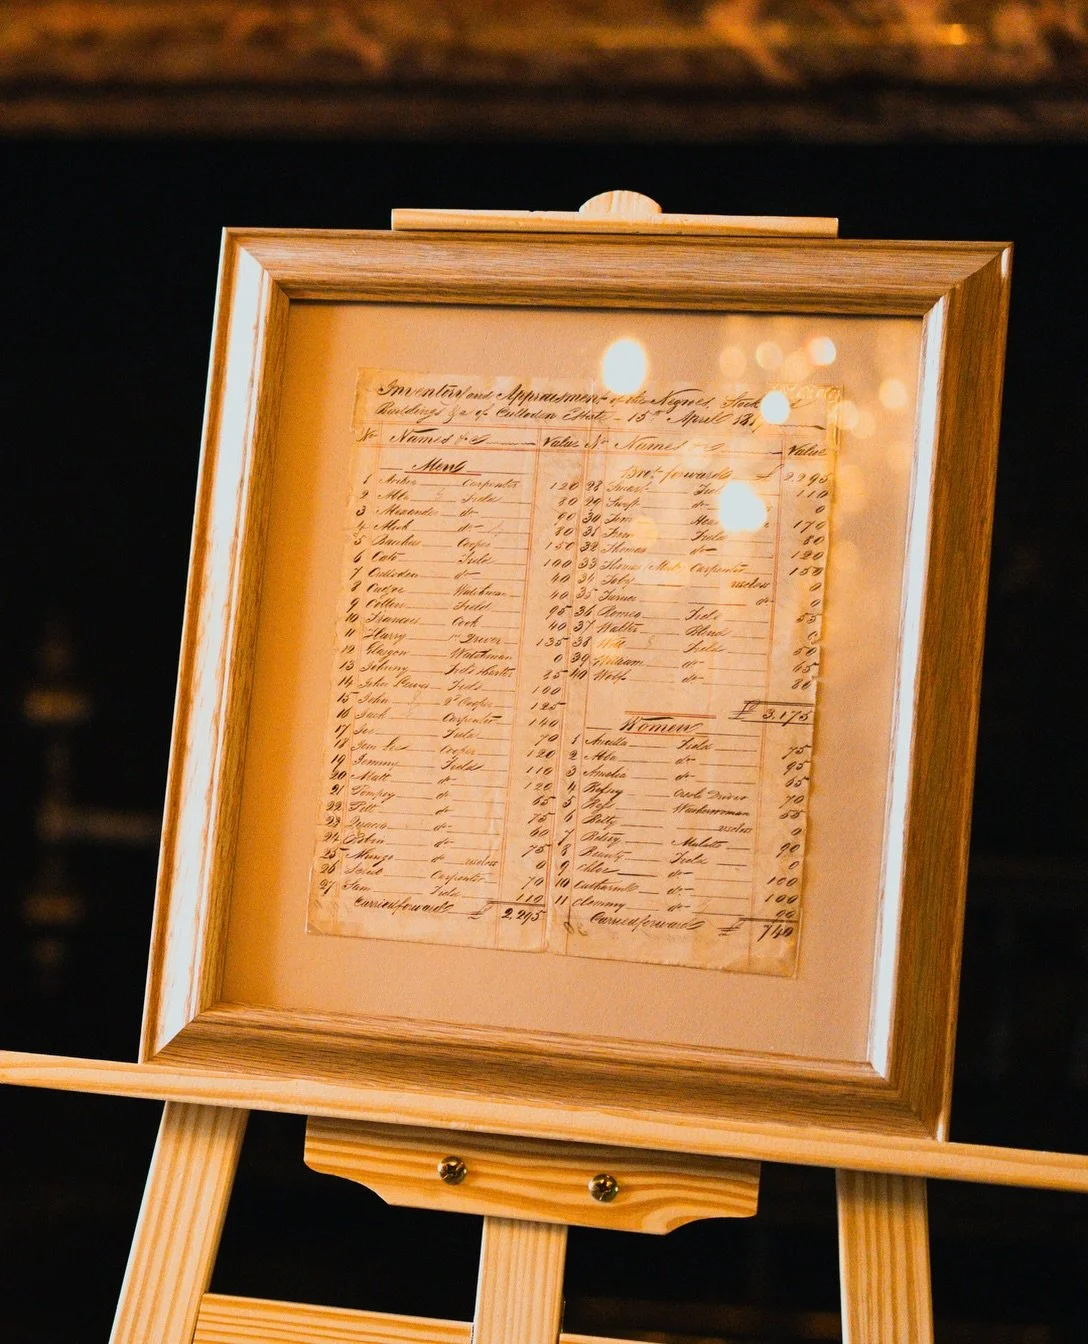 Inventory and Appraisement of the Negroes, Stock
Buildings &c of Culloden Estate - 15th April
No Names &c Value
Men
1 Carpenter 120
2 Abba Field 80
3 Alexander do 90
4 Alick do 80
5 Bacchus Cooper 150
6 Cato Field 100
7 Culloden do 40
8 Cudjoe Watchman 40
9 Field 95
10 Francois Cook 40
11 Harry 1st Driver 135
12 Glasgow Watchman 0
13 Johnny 85
14 John Lewis Field 100
15 John 2d Cooper 125
16 Jack Carpenter 140
17 Joe Field 70
18 Cooper 120
19 Tommy Field 110
20 Matt do 120
21 Pompey do 65
22 Pitt do 75
23 Quaco do 60
24 Robin do 75
25 Mungo do useless 0
26 Carpenter 70
27 Sam Field 110
Carried forward £ 2.295
No Names &c Value
Brot forward £ 2.295
28 Field 110
29 Swift do 0
30 Tom 170
31 Field 80
32 Thomas do 120
33 Thomas Carpenter 150
34 Toby useless 0
35 Turner do 0
36 Romeo Field 55
37 Walter Blind 0
38 Will Field 50
39 William do 65
40 Wolfe do 80
£ 3.175
Women
1 Ancilla Field 75
2 Abba do 95
3 Amelia do 65
4 Driver 70
5 Washerwoman 55
6 Betty useless 0
7 Betsey Mulatto 90
8 Beauty Field 0
9 Chloe do 100
10 Catharine do 100
11 Clammy do 90
Carried forward £ 740